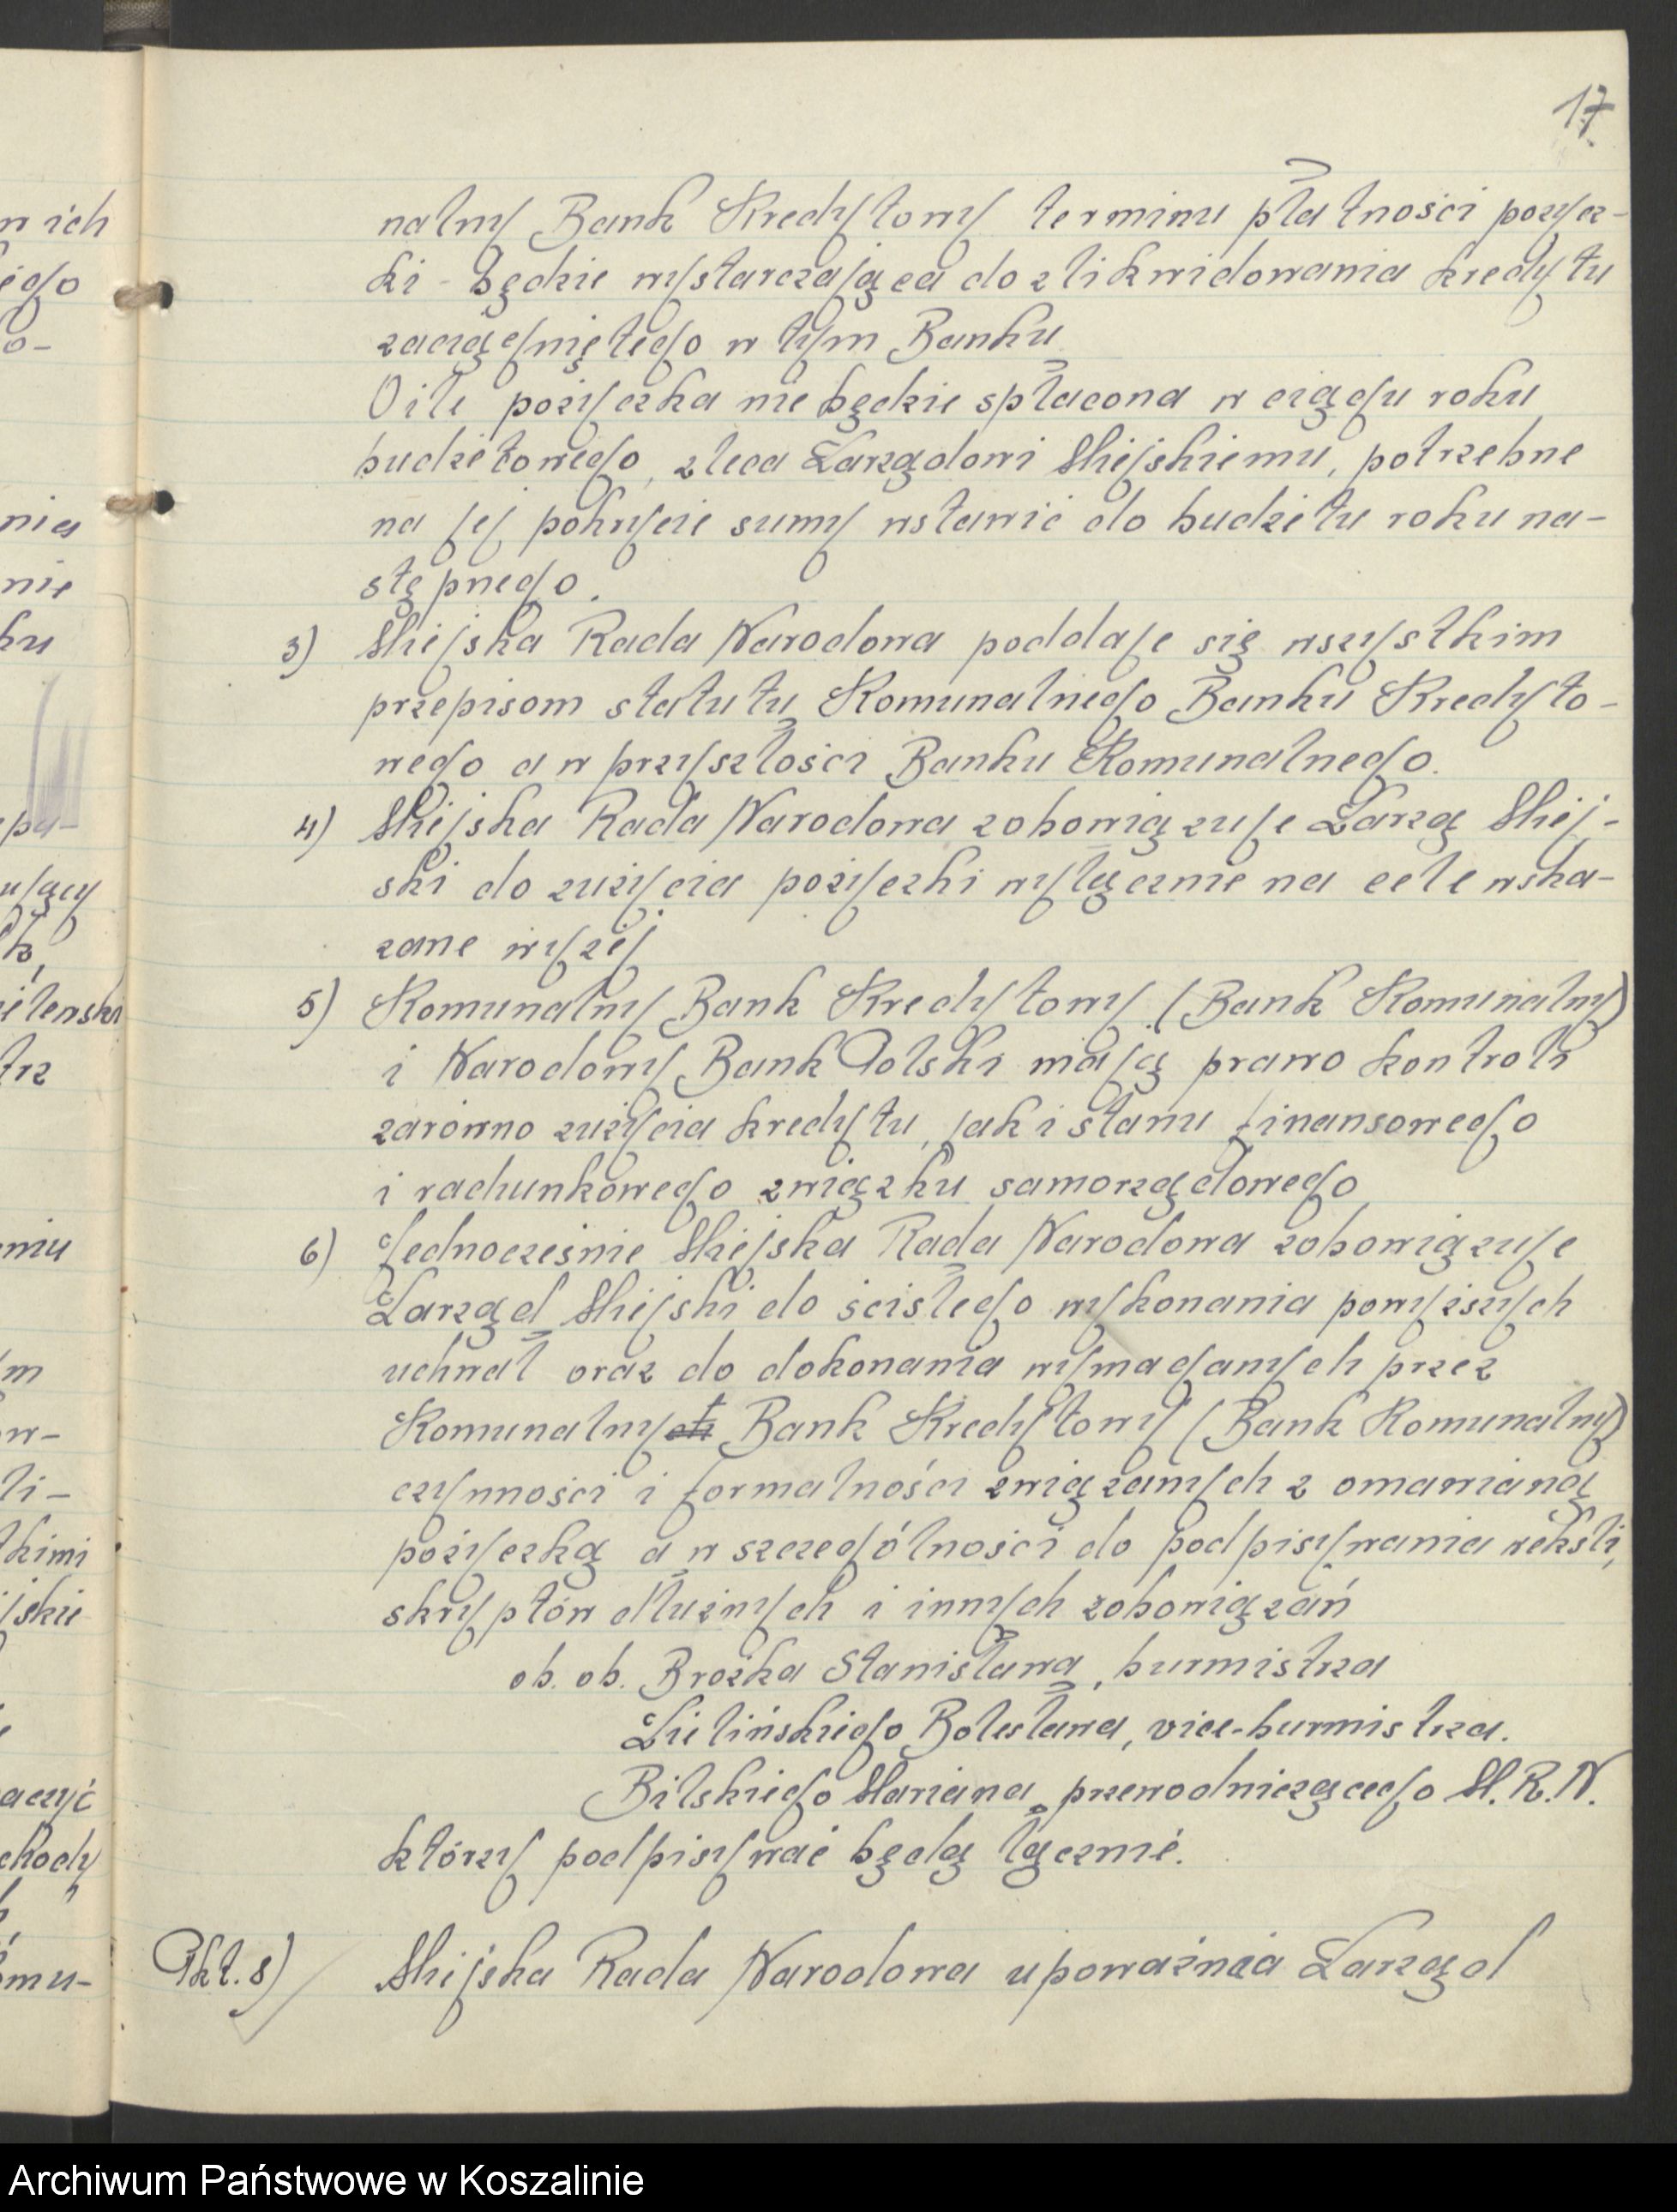 17
nalny Bank Kredytowy terminu płatności pożycz-
ki - będzie wystarczająca do zlikwidowania kredytu
zaciągniętego w tym Banku
O ile pożyczka nie będzie spłacona w ciągu roku
budżetowego, zleca Zarządowi Miejskiemu, potrzebne
na jej pokrycie sumy wstawić do budżetu roku na-
stępnego.
3) Miejska Rada Narodowa poddaje się wszystkim
przepisom statutu Komunalnego Banku Kredyto-
wego a w przyszłości Banku Komunalnego.
4) Miejska Rada Narodowa zobowiązuje Zarzą Miej-
ski do zużycia pożyczki wyłącznie na cele wska-
zane wyżej
5) Komunalny Bank Kredytowy (Bank Komunalny)
i Narodowy Bank Polski mają prawo kontroli
zarówno zużycia kredytu, jak i stanu finansowego
i rachunkowego związku samorządowego
6) Jednocześnie Miejska Rada Narodowa zobowiązuje
Zarząd Miejski do ścisłego wykonania powyższych
uchwał oraz do dokonania wymaganych przez
Komunalnych Bank Kredytowy (Bank Komunalny)
czynności i formalności związanych z omawianą
pożyczką a w szczególności do podpisywania weksli,
skryptów dłużnych i innych zobowiązań
ob. ob. Brożka Stanisława, burmistrza
Zielińskiego Bolesława, vice-burmistrza.
Bilskiego Mariana, przewodniczącego M.R.N.
którzy podpisywać będą łącznie.
Pkt. 8) Miejska Rada Narodowa upoważnia Zarząd
w ich
ego
o-
nia
nie
ku
pa-
ujący
trz
niu
m
ow-
li-
tkimi
jskie
aczyć
chody
omu-
Archiwum Państwowe w Koszalinie